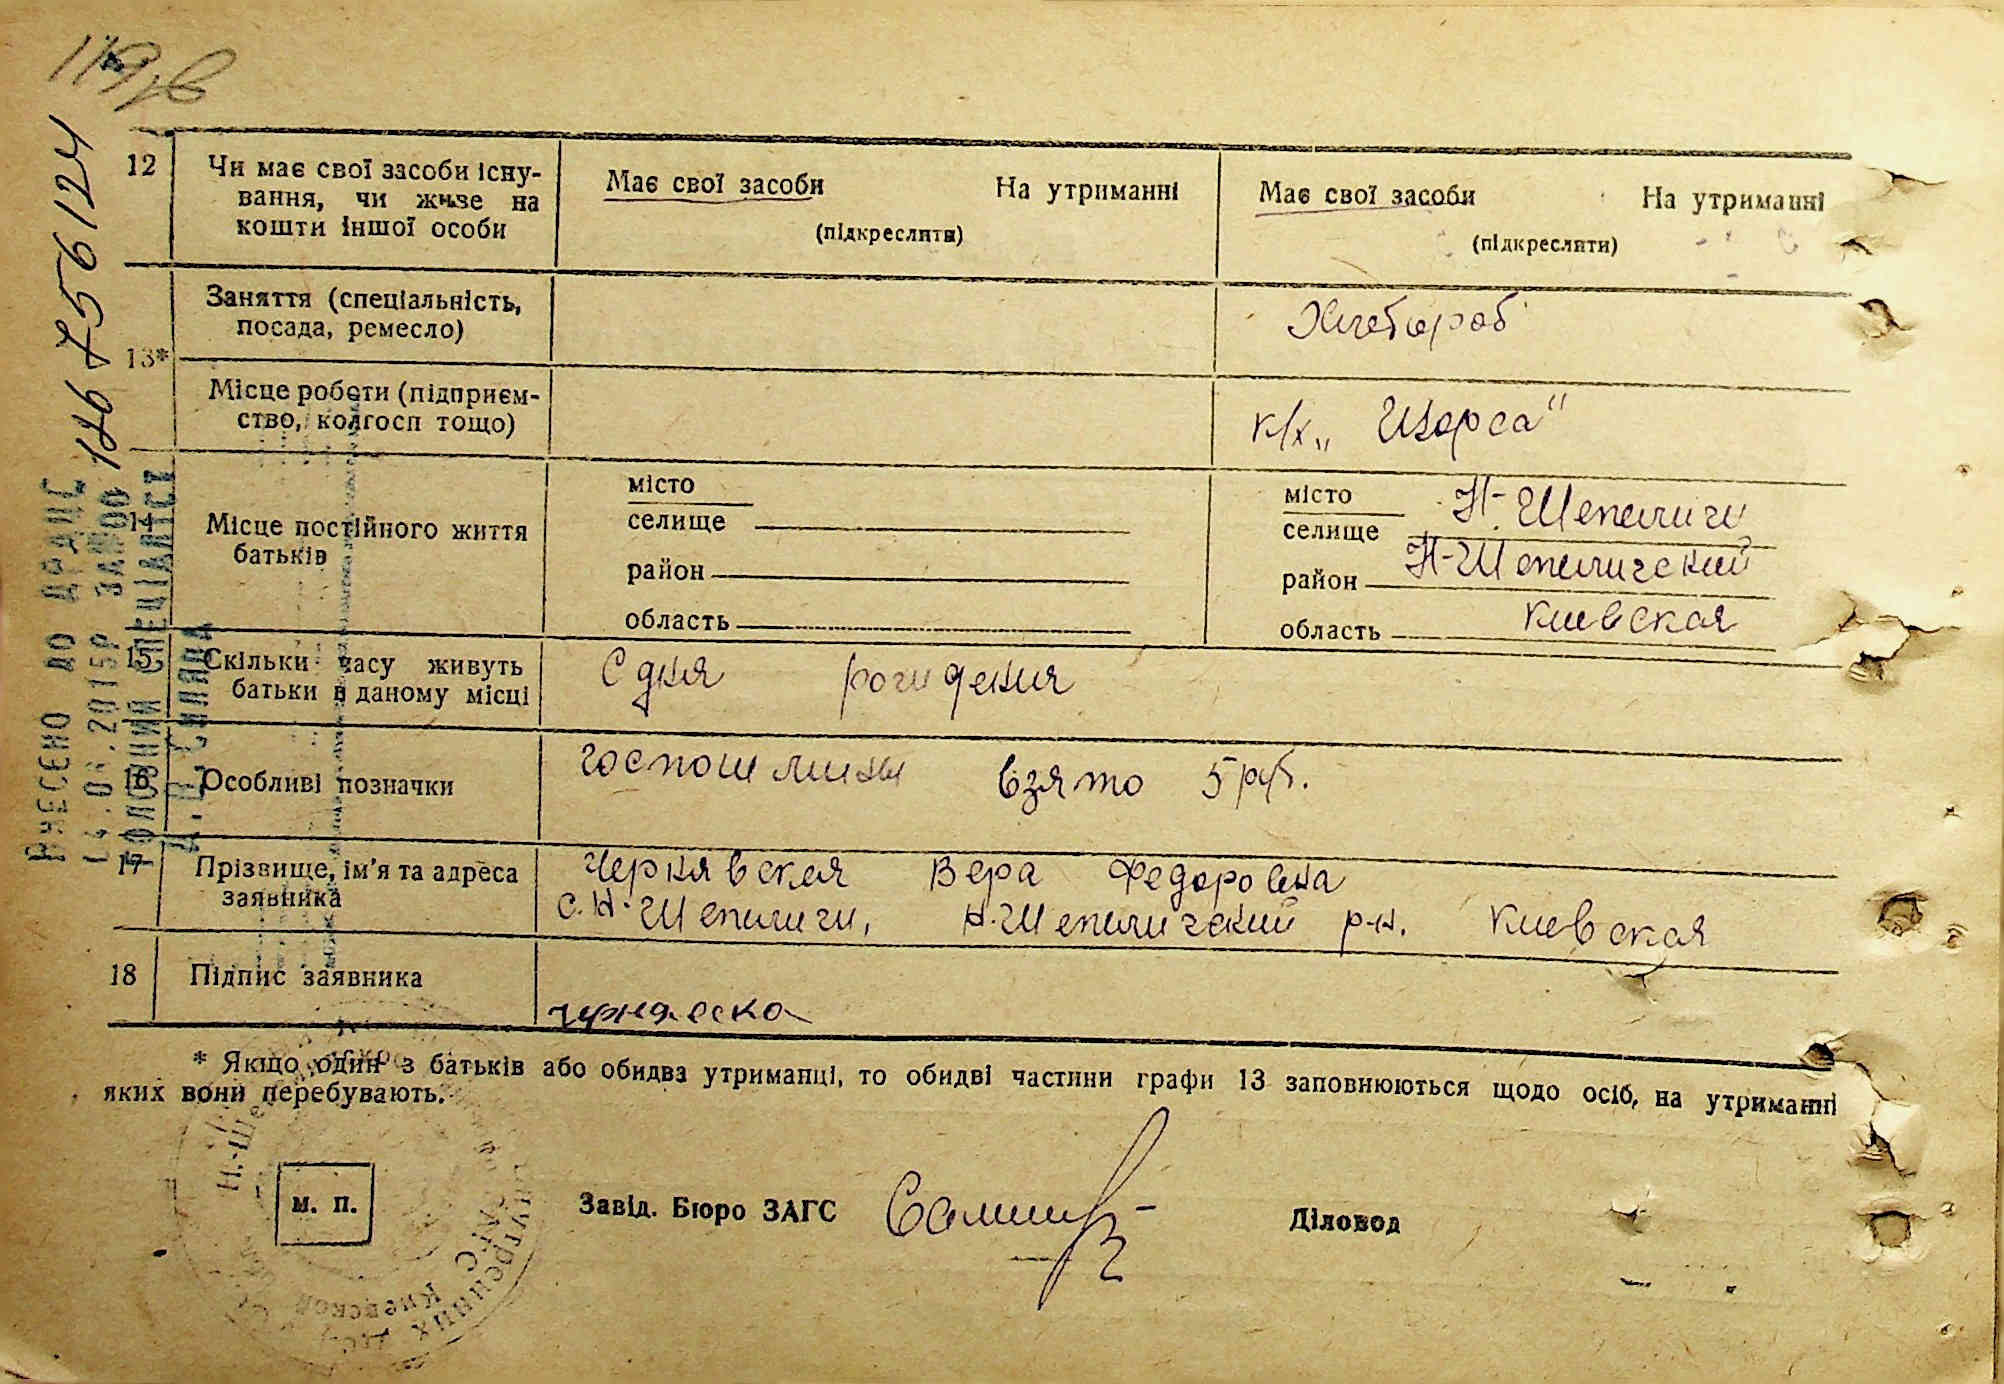 119
12 Чи має свої засоби існу-
вання, чи живе на
кошти іншої особи
Має свої засоби На утриманні
(підкреслити)
Має свої засоби На утриманні
(підкреслити)
13*
Заняття (спеціальність,
посада, ремесло)
Хлебороб
Місце роботи (підприєм-
ство, колгосп тощо)
к/х „Щорса“
14 Місце постійного життя
батьків
місто
селище
район
область
місто
селище Н-Шепиличи
район Н-Шепиличский
область Киевская
15 Скільки часу живуть
батьки в даному місці
С дня рождения
16 Особливі позначки
госпошлины взято 5 руб.
17 Прізвище, ім'я та адреса
заявника
Чернявская Вера Федоровна
с. Н-Шепиличи, Н-Шепиличский р-н. Киевская
18 Підпис заявника
* Якщо один з батьків або обидва утриманці, то обидві частини графи 13 заповнюються щодо осіб, на утриманні
яких вони перебувають.
м. п.
Завід. Бюро ЗАГС
Діловод
756124
ВНЕСЕНО ДО ДРАЦС
2015Р ЗА №00
ГОЛОВНИЙ СПЕЦІАЛІСТ